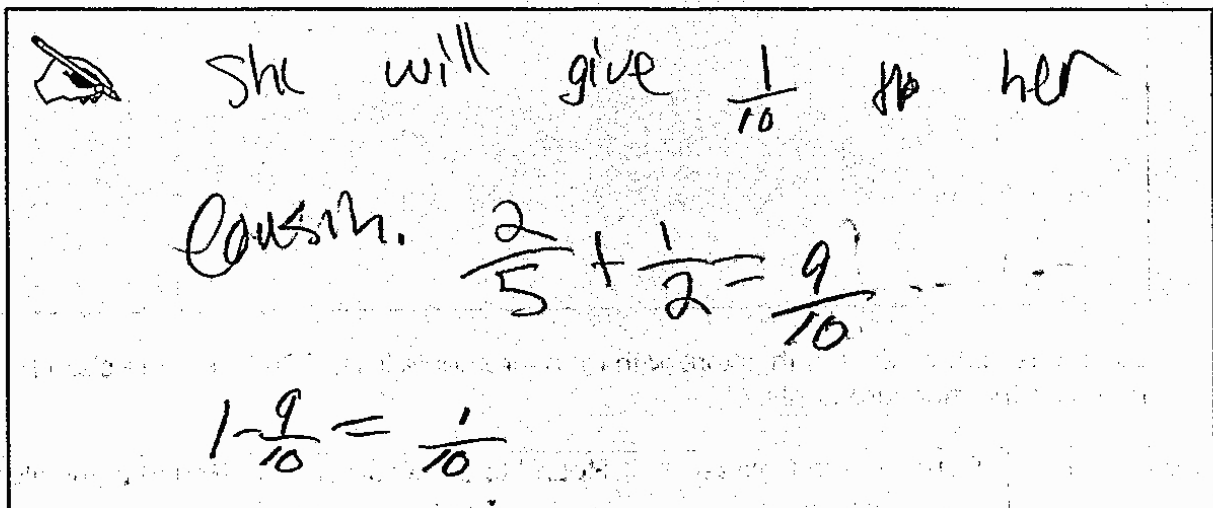 She will give 1/10 to her
Cousin. 2/5 + 1/2 = 9/10
1 - 9/10 = 1/10